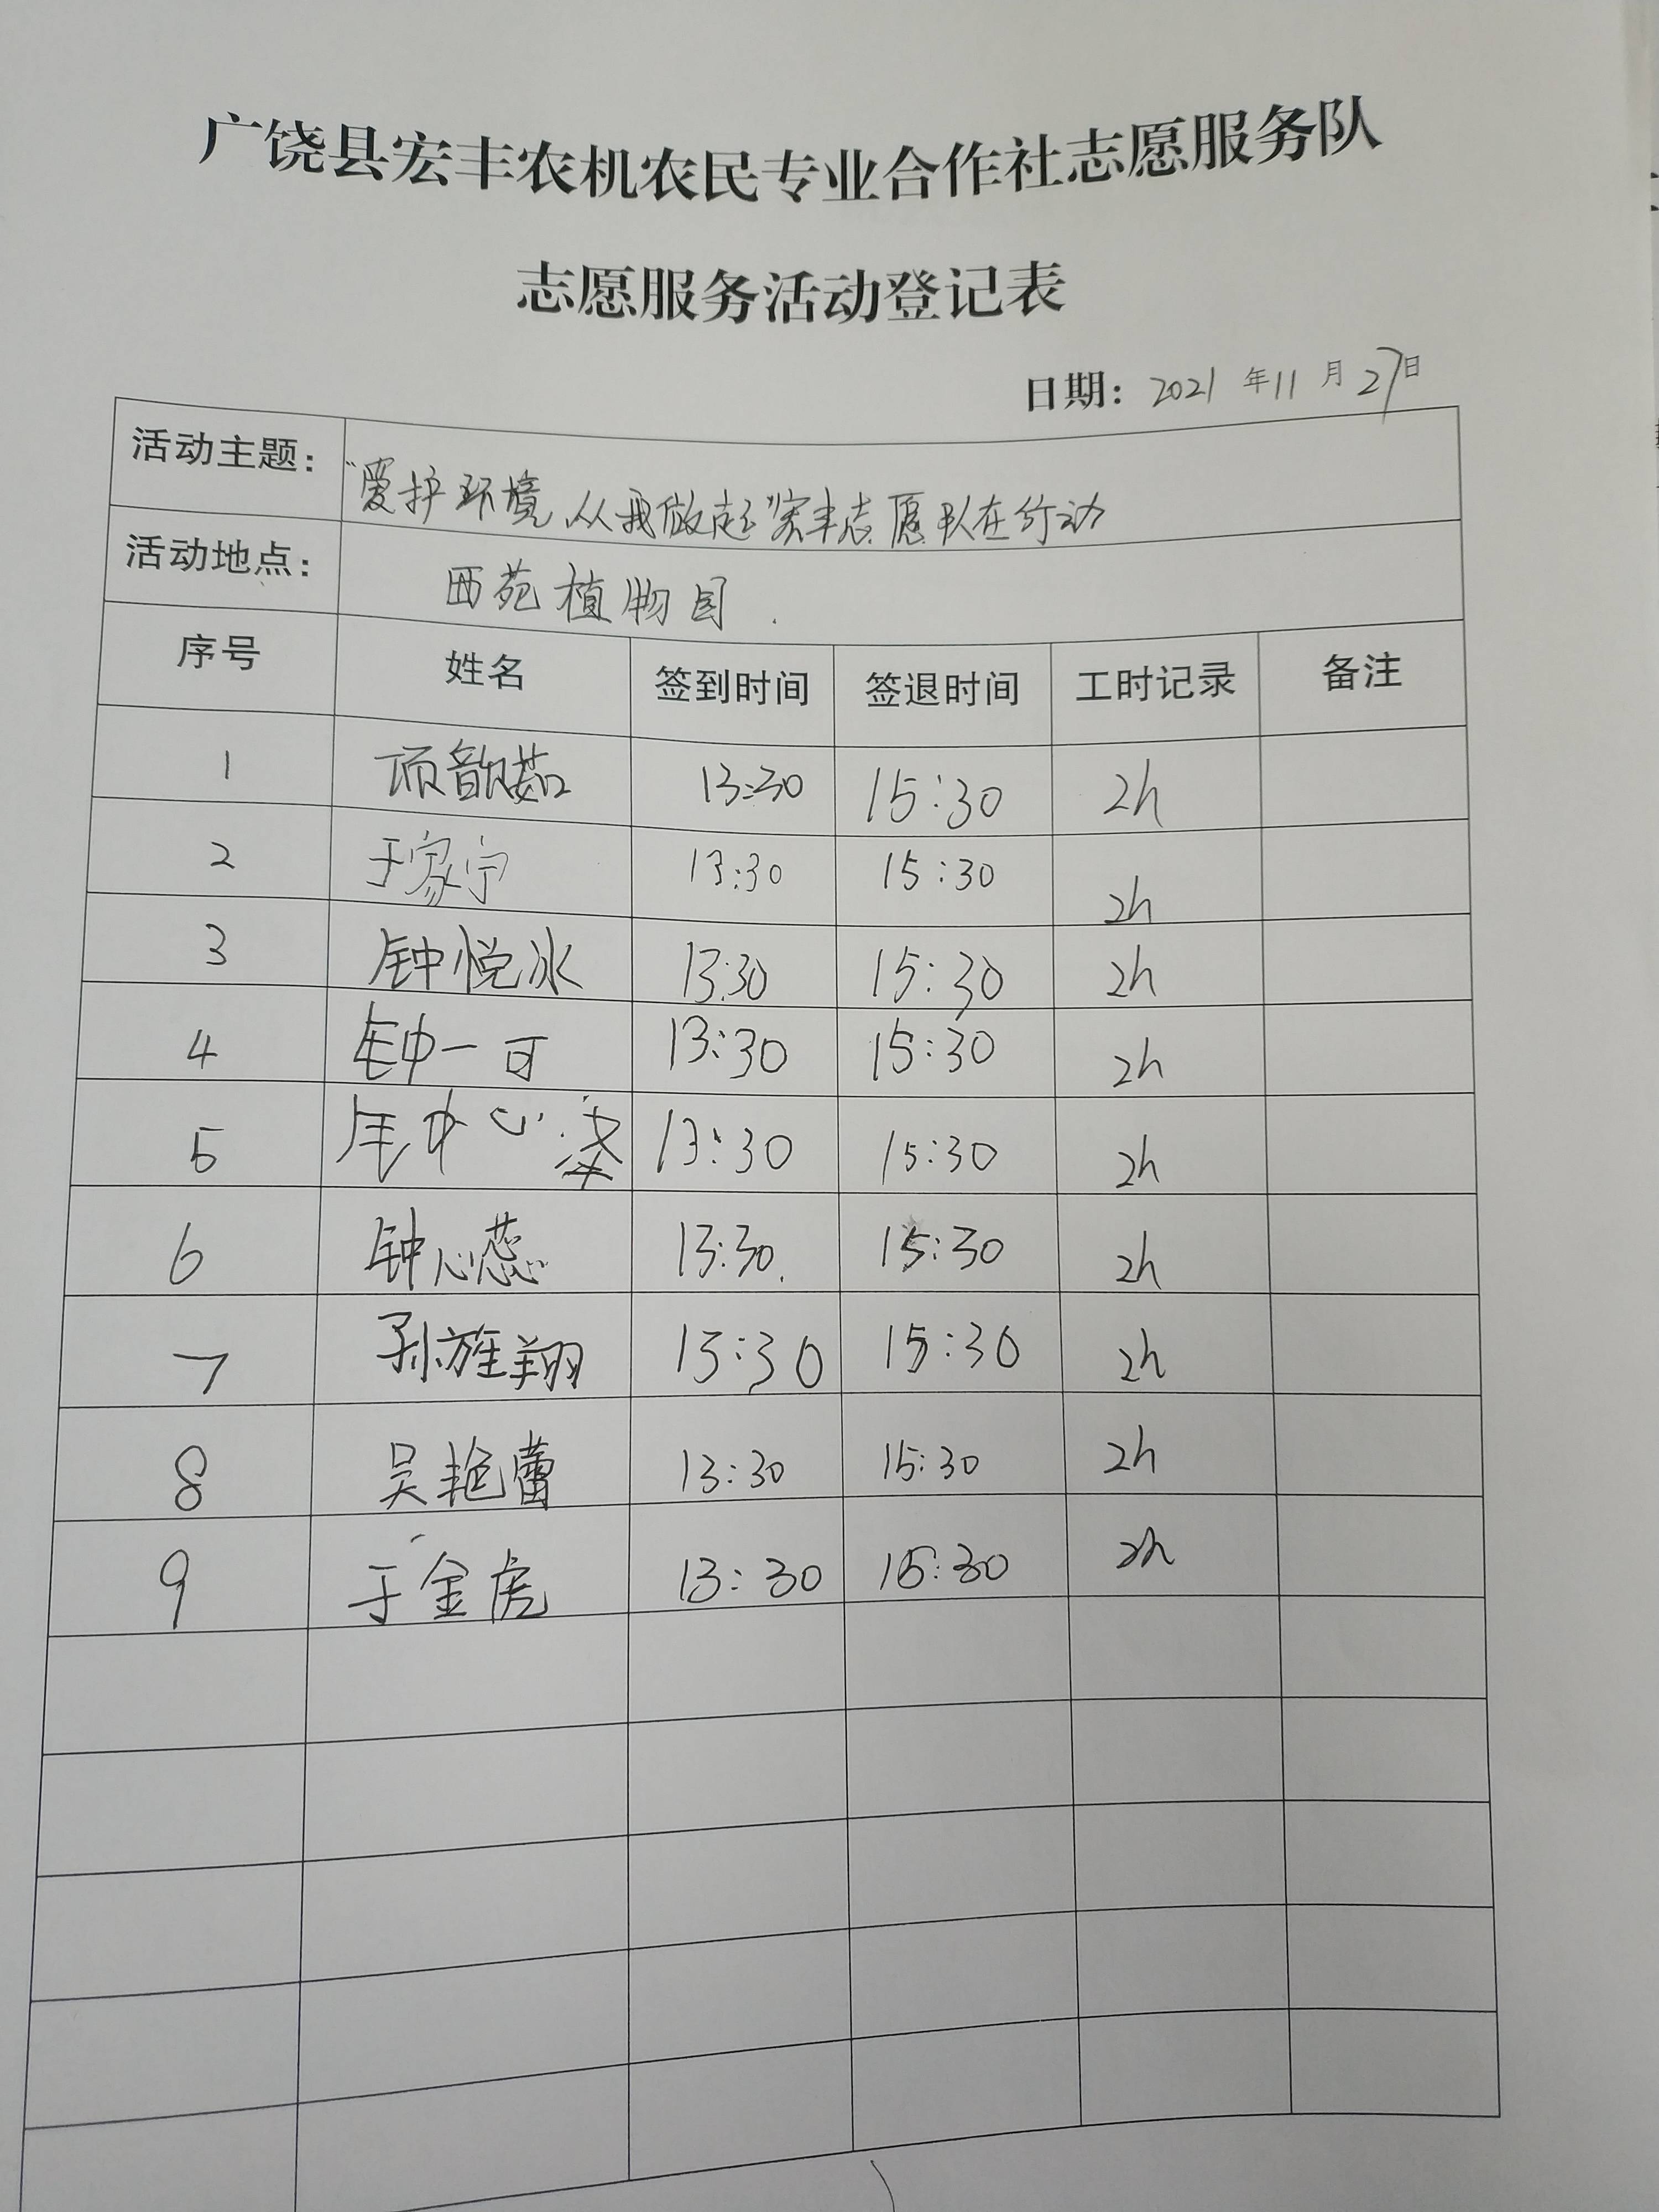 广饶县宏丰农机农民专业合作社志愿服务队
志愿服务活动登记表
日期：2021 年 11 月 27 日
活动主题： "爱护环境 从我做起"宏丰志愿队在行动
活动地点： 西苑植物园.
序号 姓名 签到时间 签退时间 工时记录 备注
1 项歆茹 13:30 15:30 2h
2 于家宁 13:30 15:30 2h
3 钟悦冰 13:30 15:30 2h
4 钟一可 13:30 15:30 2h
5 钟心 13:30 15:30 2h
6 钟心蕊 13:30. 15:30 2h
7 孙旌翔 13:30 15:30 2h
8 吴艳蕾 13:30 15:30 2h
9 于金虎 13:30 15:30 2h